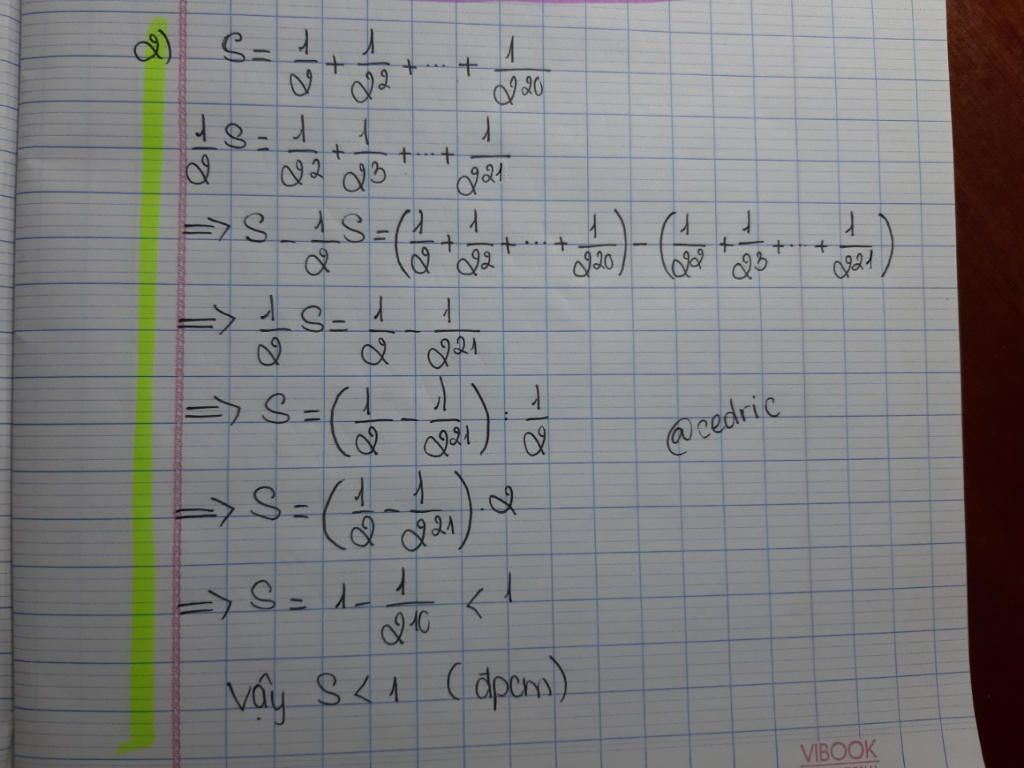 2) S = 1/2 + 1/2² + ... + 1/2²⁰
1/2 S = 1/2² + 1/2³ + ... + 1/2²¹
=> S - 1/2 S = (1/2 + 1/2² + ... + 1/2²⁰) - (1/2² + 1/2³ + ... + 1/2²¹)
=> 1/2 S = 1/2 - 1/2²¹
=> S = (1/2 - 1/2²¹) : 1/2
@cedric
=> S = (1/2 - 1/2²¹) . 2
=> S = 1 - 1/2¹⁰ < 1
Vậy S < 1 (đpcm)
VIBOOK